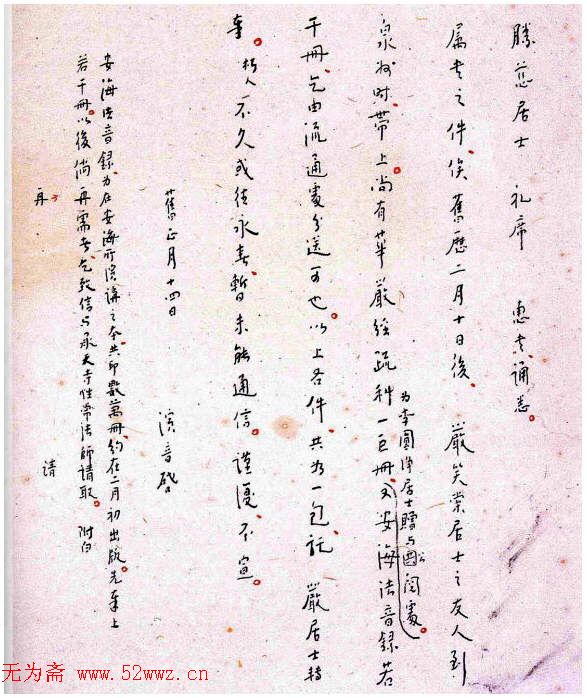 勝慈居士 礼席 惠書誦悉。
屬書之件、俟舊歷二月十日後、嚴笑棠居士之友人到
泉州時、帶上。尚有華嚴經疏科一巨冊、又安海法音録若
为李圓净居士贈与公閱處。
干冊、乞由流通處分送可也。以上各件、共为一包、託 嚴居士轉
奉。朽人不久或往永春、暫未能通信。謹復、不宣。
演音啓
舊正月十四日
安海法音録、为在安海所演講之本、共印數萬冊、約在二月初出版、先奉上
若干冊。以後倘再需者、乞致信与承天寺性常法師請取。 附白
再
请
无为斋 www.52wwz.cn